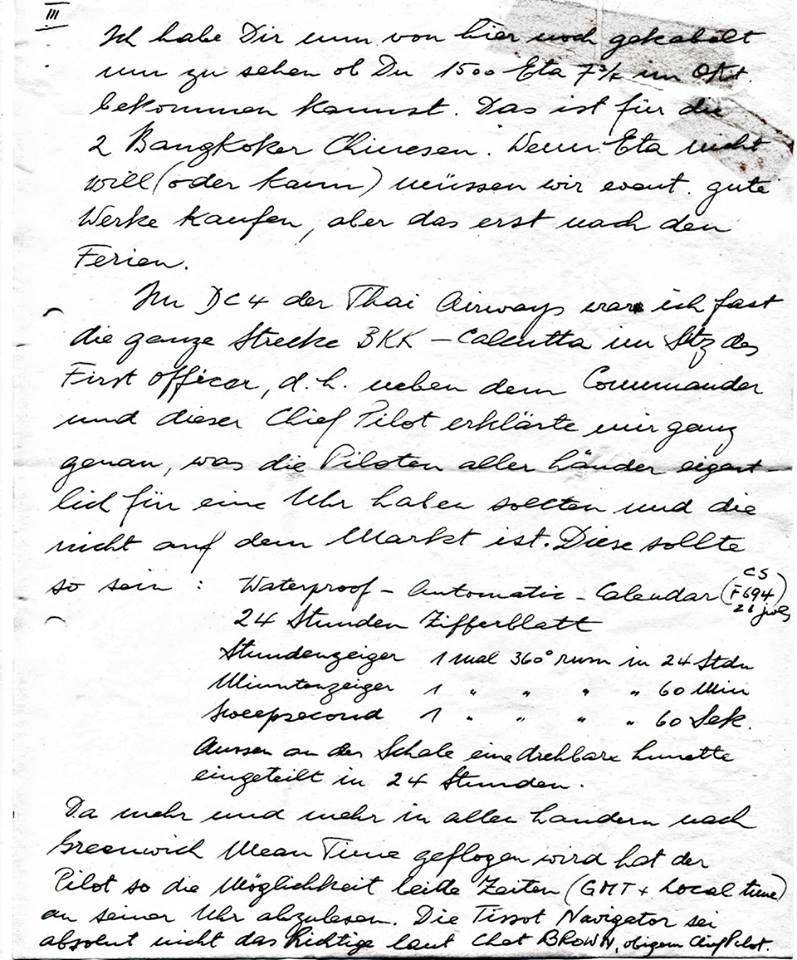 III
Ich habe Dir nun von hier noch gekabelt
um zu sehen ob Du 1500 Eta 7¾ im Okt.
bekommen kannst. Das ist für die
2 Bangkoker Chinesen. Wenn Eta nicht
will (oder kann) müssen wir event. gute
Werke kaufen, aber das erst nach den
Ferien.
Im DC4 der Thai Airways war ich fast
die ganze Strecke BKK – Calcutta im Sitz des
First Officer, d.h. neben dem Commander
und dieser Chief Pilot erklärte mir ganz
genau, was die Piloten aller Länder eigent-
lich für eine Uhr haben sollten und die
nicht auf dem Markt ist. Diese sollte
so sein : Waterproof – Automatic – Calendar (CS
F694
21 jwls)
24 Stunden Zifferblatt
Stundenzeiger 1 mal 360° rum in 24 Stdn
Minutenzeiger 1 " " " " 60 Min
Sweepsecond 1 " " " " 60 Sek.
Aussen an der Schale eine drehbare Lunette
eingeteilt in 24 Stunden.
Da mehr und mehr in allen Landern nach
Greenwich Mean Time geflogen wird hat der
Pilot so die Möglichkeit beide Zeiten (GMT + Local time)
an seiner Uhr abzulesen. Die Tissot Navigator sei
absolut nicht das Richtige laut Chet BROWN, obigem Chief Pilot.